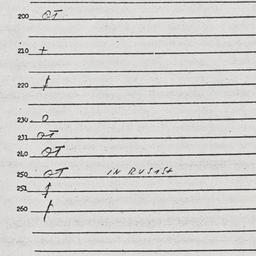 200 OT
210 +
220 /
230 0
231 OT
240 OT
250 OT IN RUSIST
251
260 /